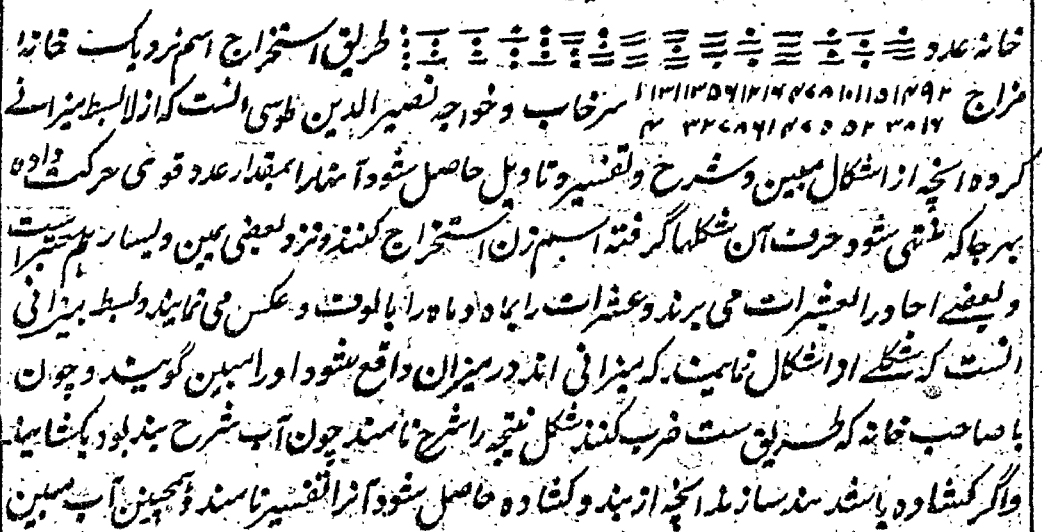 خانه عدد طریق استخراج اسم نزدیک خانه
مزاج سرخاب و خواجه نصیر الدین طوسی آنست که از لا بسط میزانی
کرده انچه از اشکال مبین و شرح و تفسیر و تاویل حاصل شود آنهارا بمقدار عدد قوی حرکت داده
بهر جا که منتهی شود حرف آن شکلها گرفته اسم زن استخراج کنند و نزد بعضی یمین و یسار هم معتبر است
و بعضے احاد را بعشرات می برند و عشرات را بماه و ماه را بالوف و عکس می نمایند و بسط میزانی
آنست که شکلے از اشکال نامیند که میزانی اند در میزان واقع شود او را مبین گویند و چون
با صاحب خانه که طریق ست ضرب کنند شکل نتیجه را شرح نامند چون آب شرح بند بود بکشایند
واگر کشاده باشد بند سازند انچه از بند و کشاده حاصل شود آنرا تفسیر نامند و همچنین آب مبین